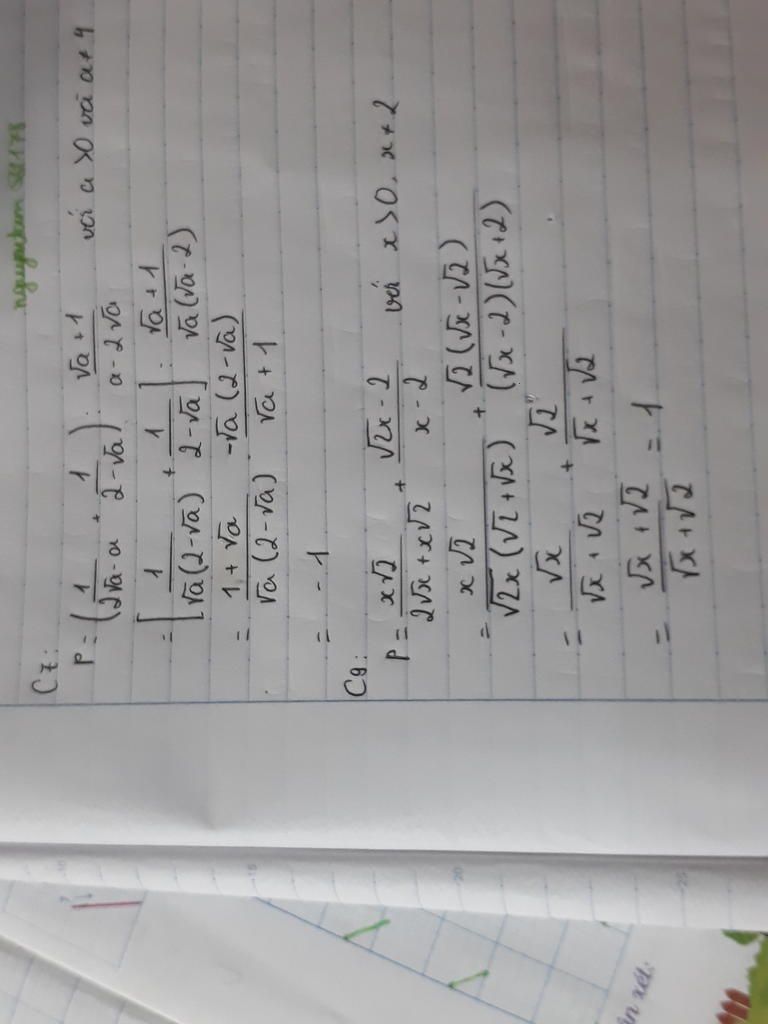 C7:
P = (1/(2√a - a) + 1/(2 - √a)) : (√a + 1)/(a - 2√a) với a > 0 và a ≠ 4
= [1/(√a(2 - √a)) + 1/(2 - √a)] : (√a + 1)/(√a(√a - 2))
= (1 + √a)/(√a(2 - √a)) . (-√a(2 - √a))/(√a + 1)
= -1
C9:
P = x√2/(2√x + x√2) + (√2x - 2)/(x - 2) với x > 0, x ≠ 2
= x√2/(√2x(√2 + √x)) + √2(√x - √2)/((√x - 2)(√x + 2))
= √x/(√x + √2) + √2/(√x + √2)
= (√x + √2)/(√x + √2) = 1